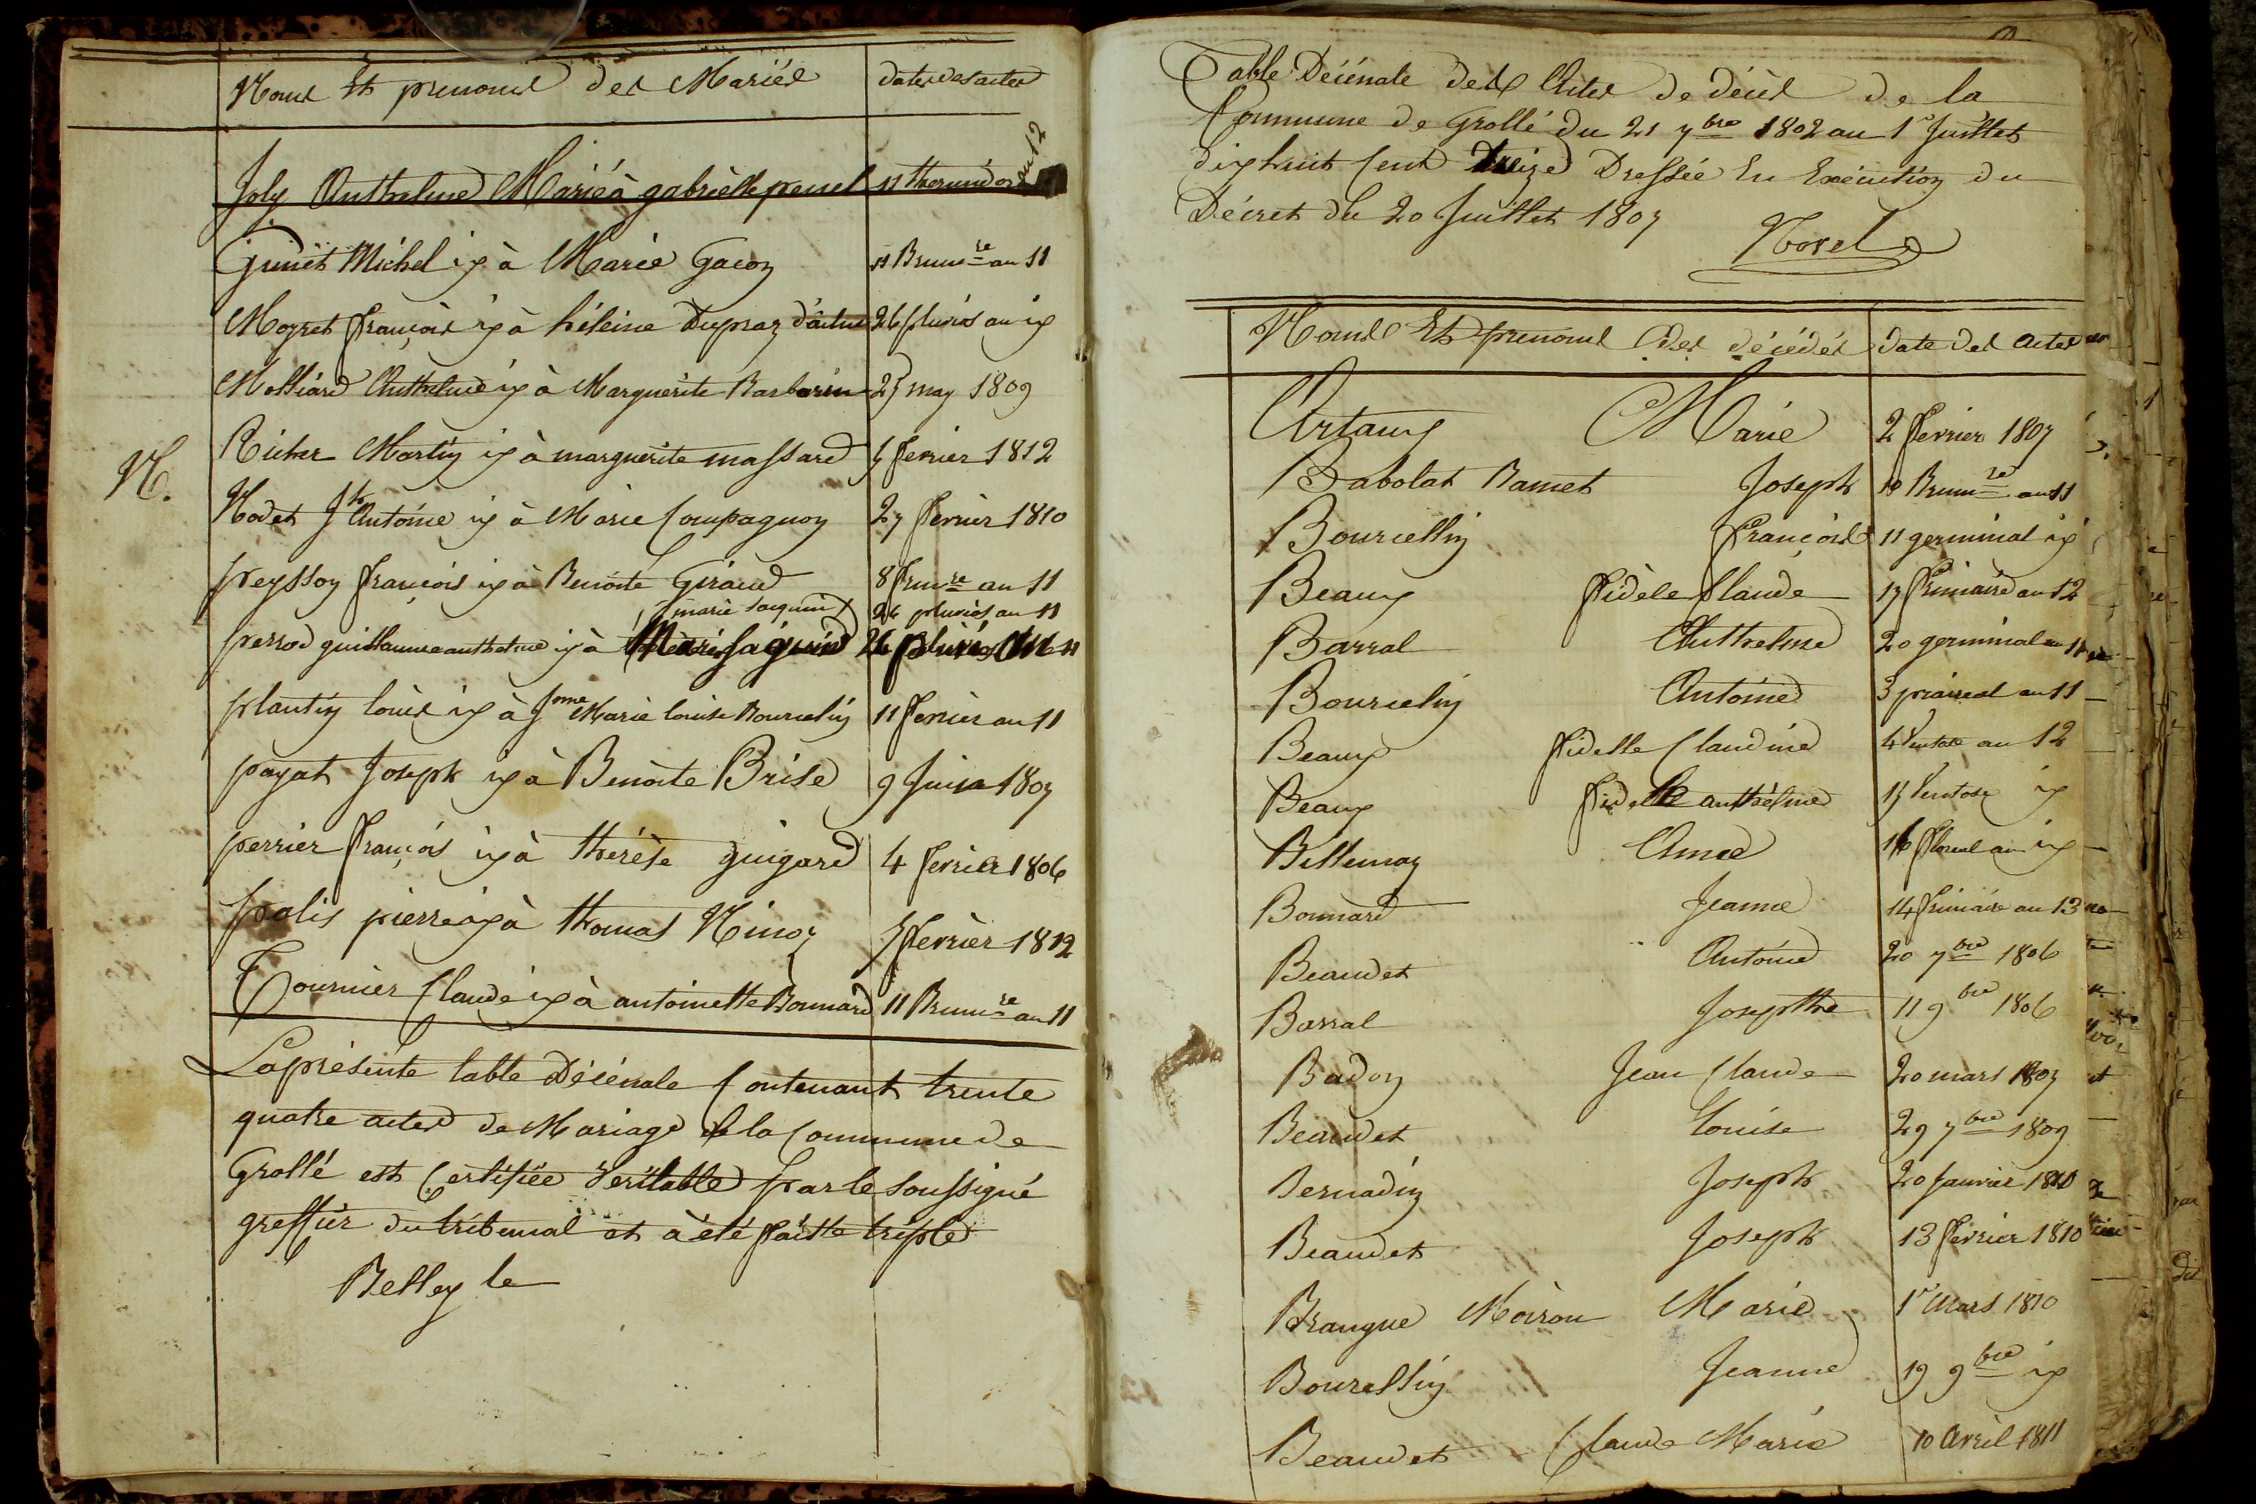 Noms Et prenoms des Mariés dates des actes
Joly Anthelme Marié à gabrièlle penel 11 thermidor an 12
Guinet Michel id à Marie Gacon 11 Brum.re an 11
Moyret françois id à héleine Dupraz 26 pluvios an id
Molliard Anthelme id à Marguerite Barbarin 25 may 1809
Richer Martin id à marguerite massard 5 fevrier 1812
N.
Nodet Jh Antoine id à Marie Compagnon 27 fevrier 1810
peysson françois id à Benoite Giraud 8 frim.re an 11
marie saquin 26 pluvios an 11
perrod guillaume anthelme id à Marie saquin 26 pluvios an 11
plantin louis id à Marie louise Bourcelin 11 fevrier an 11
payat Joseph id à Benoite Brise 9 Juin 1807
perrier françois id à thérèse guigard 4 fevrier 1806
polis pierre id à thomas Ninoz 5 fevrier 1812
Tournier Claude id à antoinette Bonnard 11 Brum.re an 11
La présente table Décénale Contenant trente
quatre actes de Mariage de la Commune de
Grollé est Certifiée véritable par le soussigné
greffier du tribunal et à été faitte triple
Belley le
Table Décénale des Actes de décès de la
Commune de Grollé du 21 7bre 1802 au 1r Juillet
dix huit Cent treize Dressée En Exécution du
Décret du 20 Juillet 1807
Novel
Noms Et prenoms des décédés date des actes
Artaux Marie 2 fevrier 1807
Babolat Ramet Joseph 10 Brum.re an 11
Bourcellin François 11 germinal id
Beaux fidèle Claude 17 frimaire an 12
Barral Anthelme 20 germinal an 11
Bourcelin Antoine 3 prairial an 11
Beaux fidelle Claudine 4 Ventose an 12
Beaux fidelle anthelme 15 Ventose id
Billemaz Anne 16 floreal an id
Bonnard Jeanne 14 frimaire an 13
Beaudet Antoine 20 7bre 1806
Barral Josepthe 11 9bre 1806
Badon Jean Claude 20 mars 1807
Beaudet Louise 29 7bre 1809
Bernadin Joseph 20 Janvier 1810
Beaudet Joseph 13 fevrier 1810
Brangue Moiron Marie 1r Mars 1810
Bourellin Jeanne 19 9bre id
Beaudet Claude Marie 10 Avril 1811